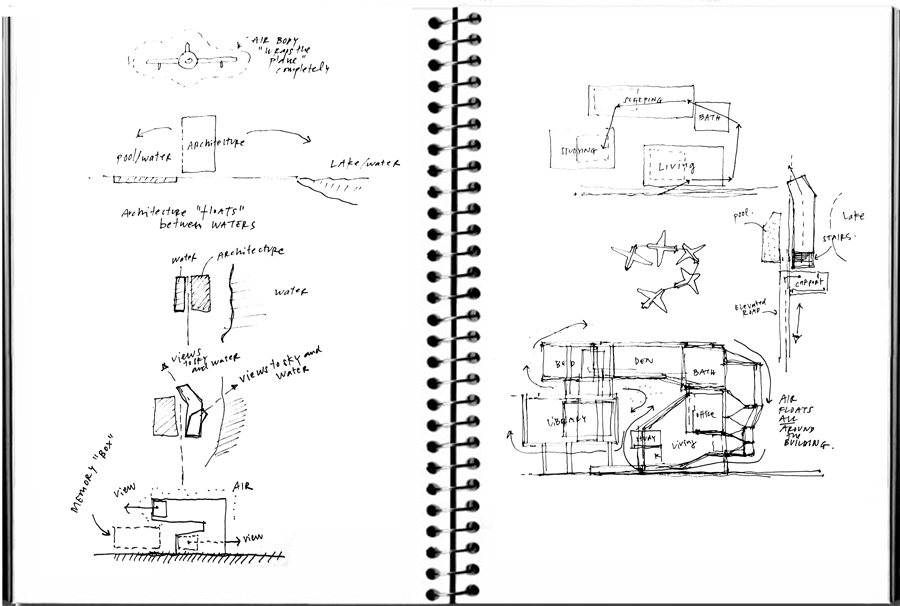 AIR BODY
"WRAPS the
plane"
completely
pool/water
ARchitecture
LAKE/WATER
Architecture "floats"
between WATERS
water
ARchitecture
water
views
to sky
and water
views to sky and
water
MEMORY "BOX"
view
AIR
view
SLEEPING
BATH
STUDYING
LIVING
pool.
Lake
STAIRS.
CARPORT
ELEVATED
ROAD
BED
DEN
BATH
LIBRARY
OFFICE
STUDY
LIVING
K
AIR
FLOATS
ALL
AROUND
THE
BUILDING.